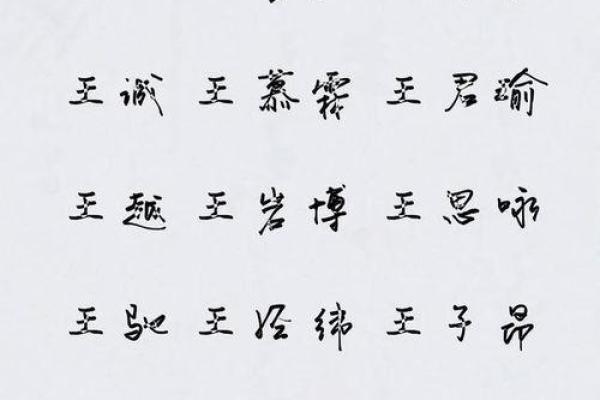 王诚 王慕霖 王君瑜
王越 王岩博 王思咏
王驰 王经纬 王子昂